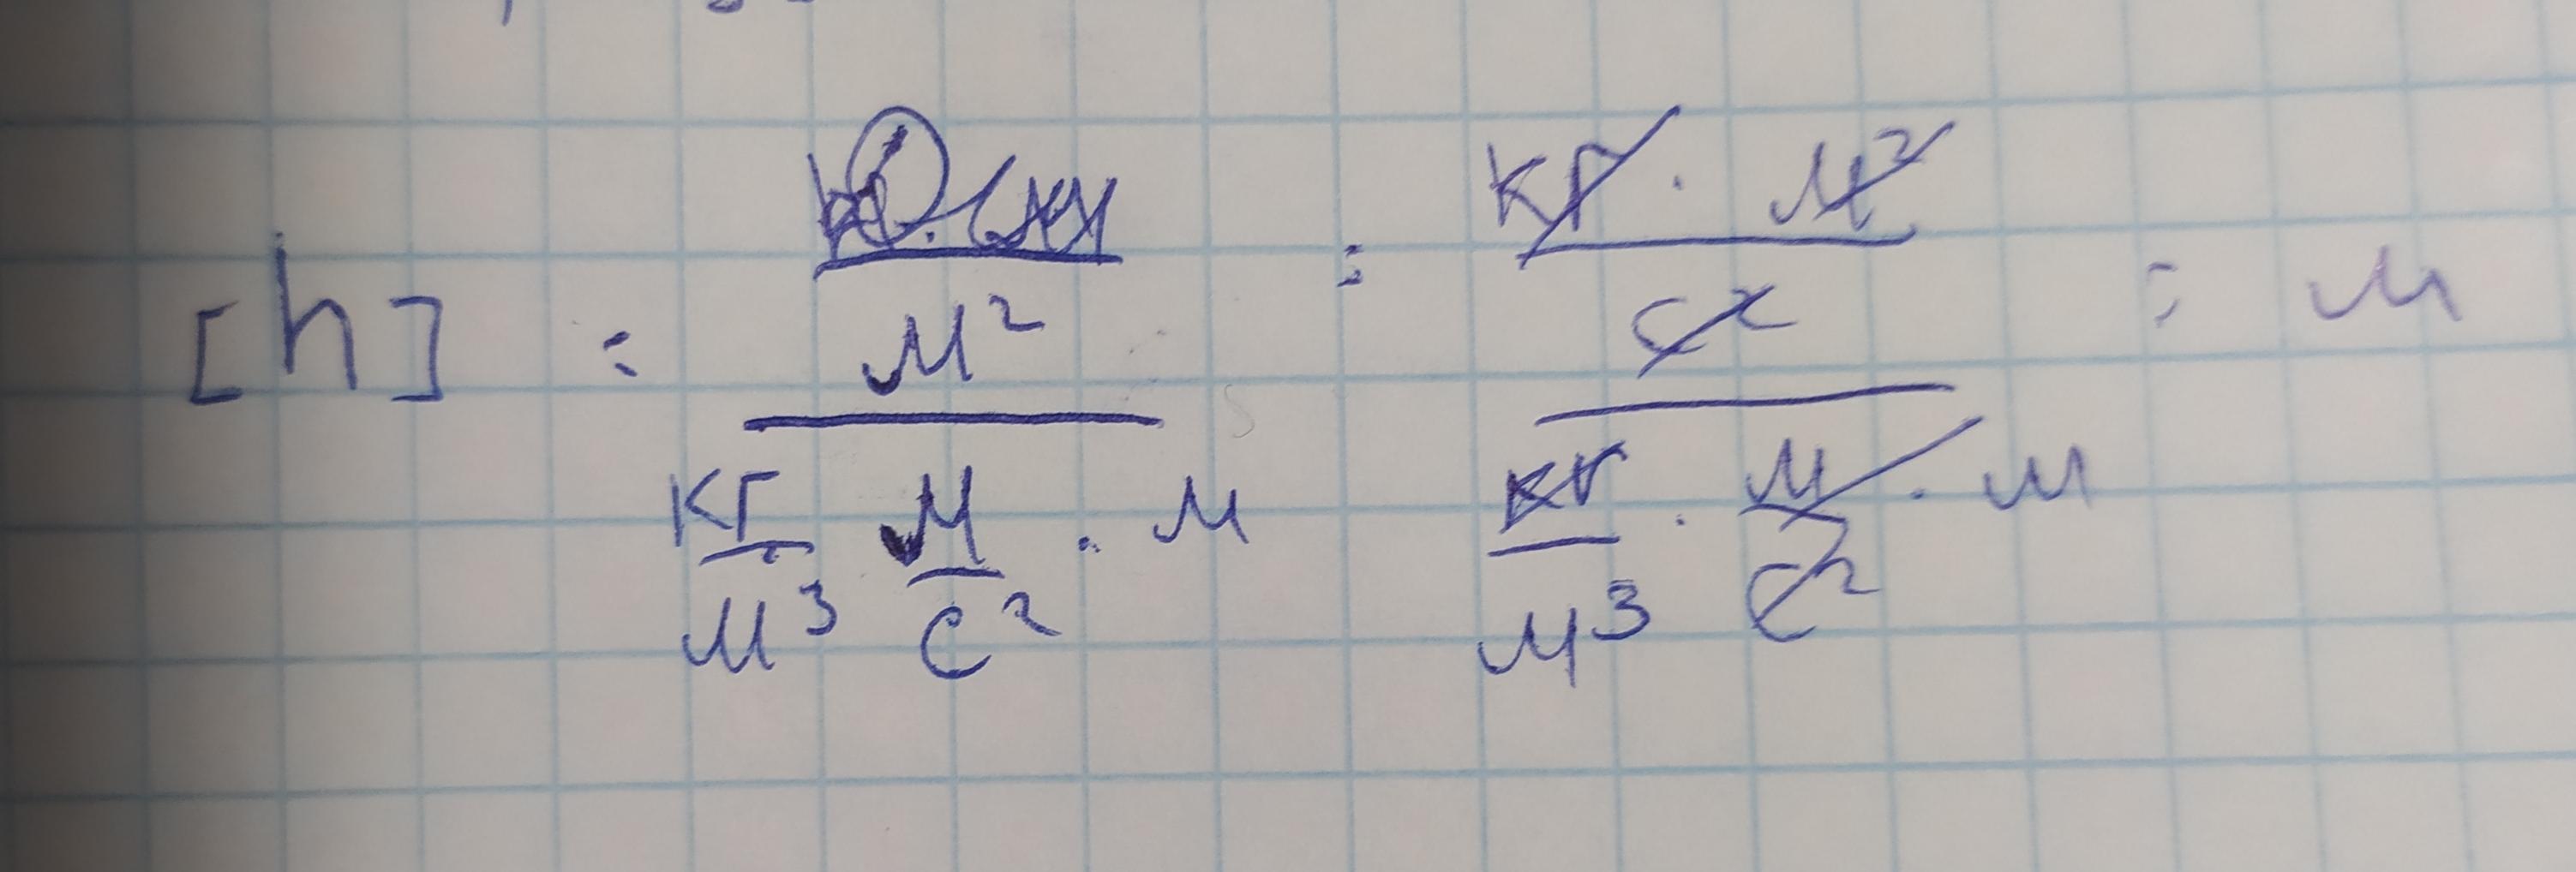 [h] = м² / (кг/м³ м/с² · м) = (кг · м² / с²) / (кг/м³ · м/с² · м) = м